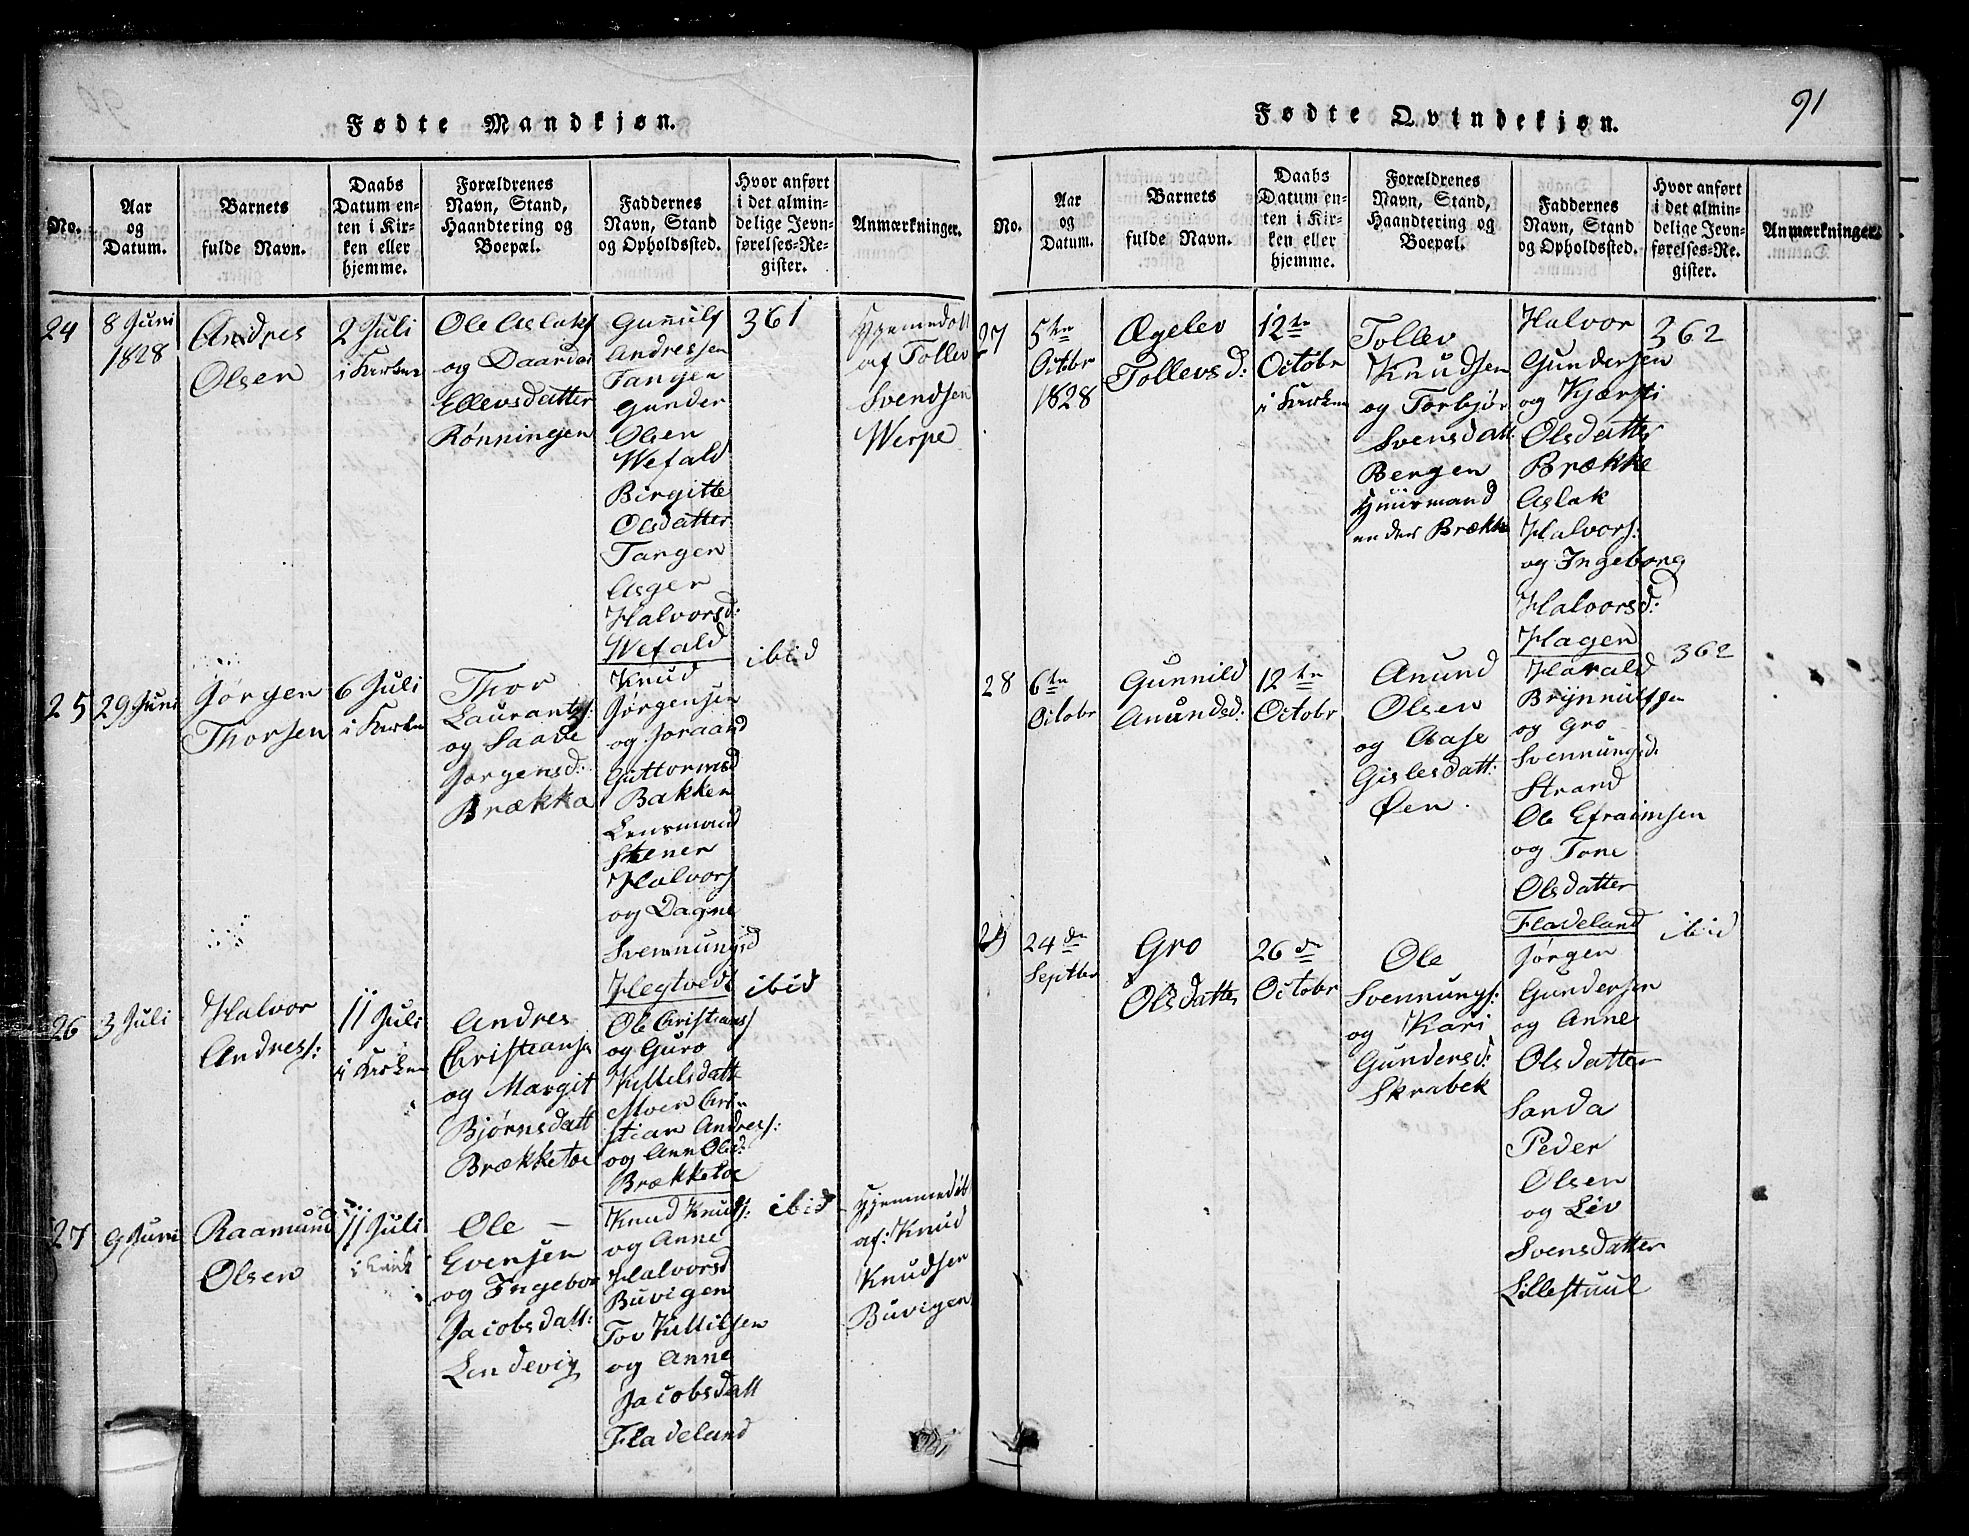 Fødte Mandkjøn.
No.
Aar
og
Datum.
Barnets
fulde Navn.
Daabs
Datum en-
ten i Kir-
ken eller
hjemme.
Forældrenes
Navn, Stand,
Haandtering og
Boepæl.
Faddernes
Navn, Stand
og Opholdssted.
Hvor anført
i det almin-
delige Jevn-
førelses-Re-
gister.
Anmærkninger.
24
8 Juni
1828
Andres
Olsen
2 Juli
i Kirken
Ole Aslaks
og Daardi
Ellevsdatter
Rønningen
Gunulf
Andresen
Tangen
Gunder
Olsen
Wefald
Birgitte
Olsdatter
Tangen
Asger
Halvorsd:
Wefald
361
Hjemedøbt
af Tollev
Svendsen
Werpe
25
29 Juni
Jørgen
Thorsen
6 Juli
i Kirken
Thor
Laurants:
og Saave
Jørgensd:
Brækka
Knud
Jørgensen
og Joraand
Guttormsd
Bakken
Lensmand
Stener
Halvors
og Dagne
Svennungsd
Hegtvedt
ibid
26
3 Juli
Halvor
Andres:
11 Juli
i Kirken
Andres
Christians
og Margit
Bjørnsdatt
Brækketoe
Ole Christians
og Guro
Kittelsdatt
Moen Cri-
stian Andres:
og Ann Olsd:
Brækketoe
ibid
27
9 Juni
Raamund
Olsen
11 Juli
i Kirk
Ole –
Evensen
og Ingebor
Jacobsdatt:
Lendevig
Knud Knuds:
og Anne
Halvorsd
Buvigen
Tov Kittilsen
og Anne
Jacobsdatt
Fladeland
ibid
Hjemmedøbt
af: Knud
Knudsen
Buvigen
Fødte Qvindekjøn.
91
No.
Aar
og
Datum.
Barnets
fulde Navn.
Daabs
Datum en-
ten i Kir-
ken eller
hjemme.
Forældrenes
Navn, Stand,
Haandtering og
Boepæl.
Faddernes
Navn, Stand
og Opholdssted.
Hvor anført
i det almin-
delige Jevn-
førelses-Re-
gister.
Anmærkninger.
27
5te
Octobr
1828
Ægelev
Tollevsd:
12te
Octobr
i Kirken
Tollev
Knudsen
og Torbjør
Svensdatt:
Bergen
Huusmand
under Brække
Halvor
Gundersen
og Kjærsti
Olsdatter
Brække
Aslak
Halvors:
og Ingeborg
Halvorsd:
Hagen
362
28
6te
Octobr
Gunnild
Anundsd:
12te
Octobr
Anund
Olsen
og Aase
Gislesdatt:
Øen.
Harald
Brynnulfsen
og Gro
Svennungsd:
Strand
Ole Efraimsen
og Tone
Olsdatter
Fladeland
362
29
24de
Septbr
Gro
Olsdatter
26de
Octobr
Ole
Svennungs:
og Kari
Gundersd:
Skrabek
Jørgen
Gundersen
og Anne
Olsdatter
Sanda
Peder
Olsen
og Liv
Svensdatter
Lillestuul
ibid